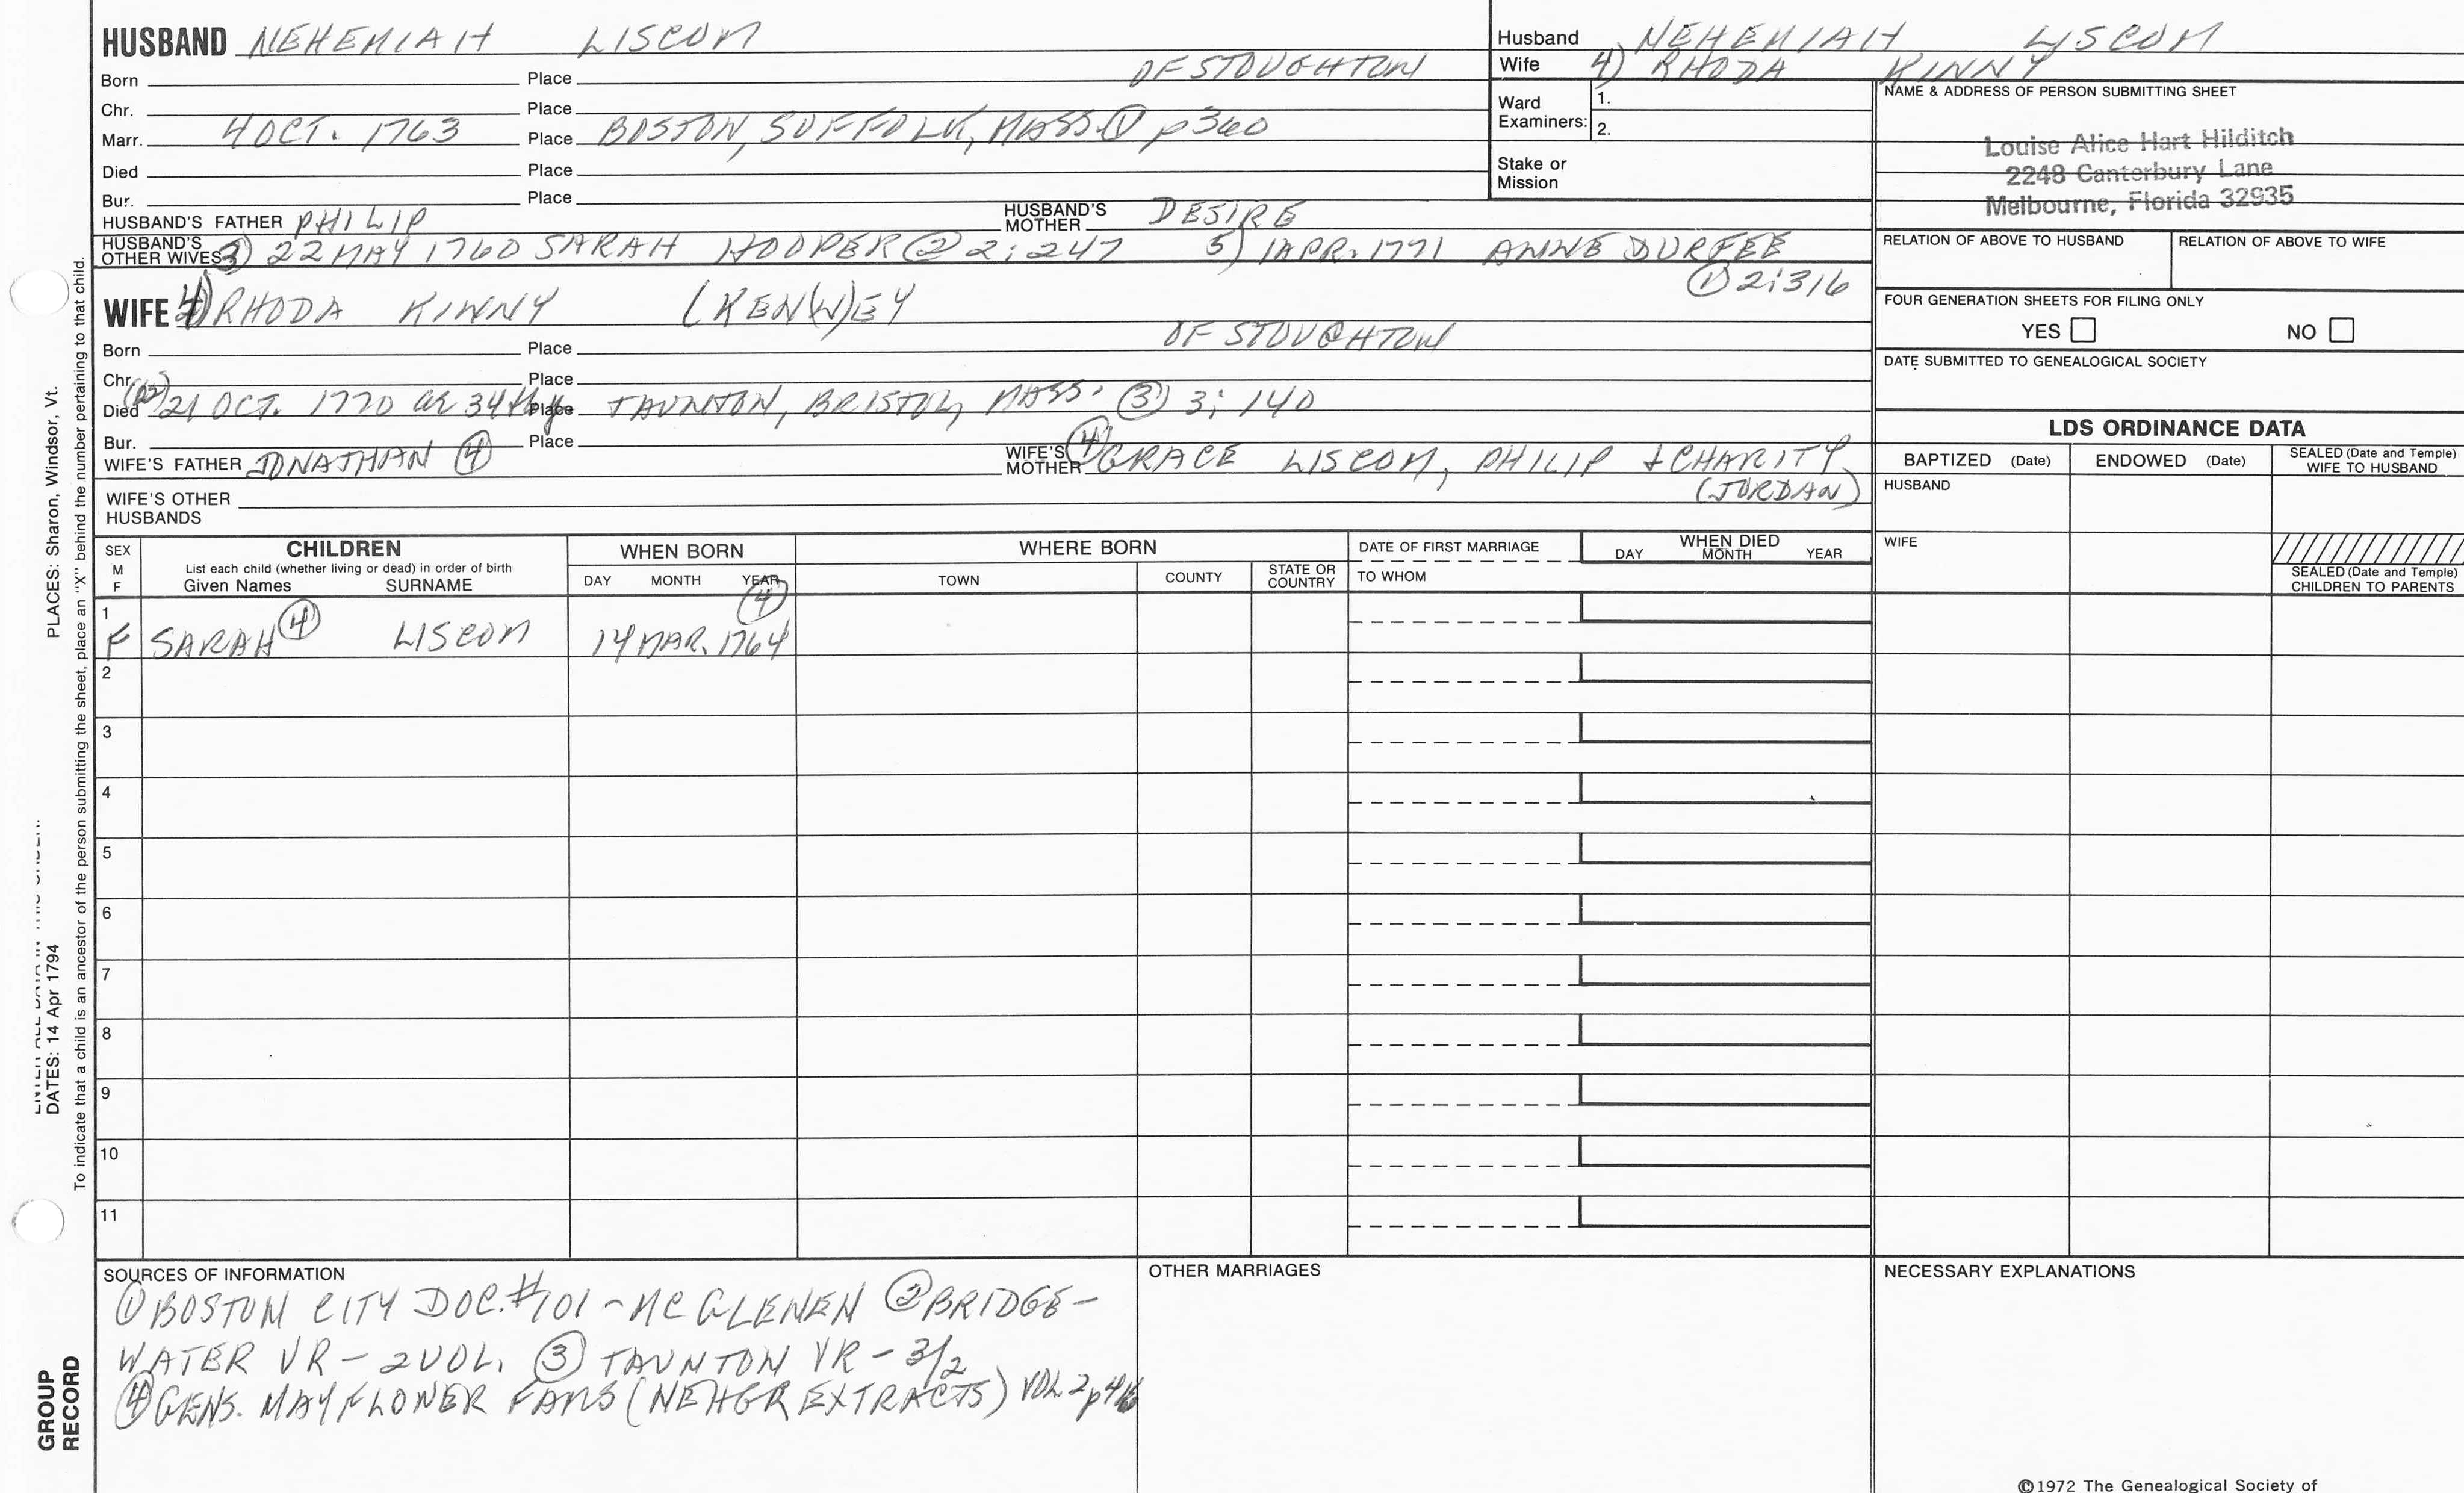 HUSBAND NEHEMIAH LISCOM
Husband NEHEMIAH LISCOM
Wife 4) RHODA KINNY
Born Place OF STOUGHTON
Chr. Place
Marr. 4 OCT. 1763 Place BOSTON, SUFFOLK, MASS. ① p360
Died Place
Bur. Place
Ward Examiners: 1. 2.
Stake or Mission
NAME & ADDRESS OF PERSON SUBMITTING SHEET
Louise Alice Hart Hilditch
2248 Canterbury Lane
Melbourne, Florida 32935
HUSBAND'S FATHER PHILIP HUSBAND'S MOTHER DESIRE
HUSBAND'S OTHER WIVES 3) 22 MAY 1760 SARAH HOOPER ② 2:247 5) 1 APR. 1771 ANNE DURFEE
① 2:316
RELATION OF ABOVE TO HUSBAND RELATION OF ABOVE TO WIFE
WIFE 4) RHODA KINNY (KEN(N)EY
FOUR GENERATION SHEETS FOR FILING ONLY
YES NO
Born Place OF STOUGHTON
Chr. Place
DATE SUBMITTED TO GENEALOGICAL SOCIETY
Died 21 OCT. 1770 ae 34th y Place TAUNTON, BRISTOL, MASS. ③ 3:140
Bur. Place
WIFE'S FATHER JONATHAN ④ WIFE'S MOTHER ④ GRACE LISCOM, PHILIP & CHARITY
(JORDAN)
WIFE'S OTHER HUSBANDS
LDS ORDINANCE DATA
BAPTIZED (Date) ENDOWED (Date) SEALED (Date and Temple) WIFE TO HUSBAND
HUSBAND
WIFE
SEALED (Date and Temple) CHILDREN TO PARENTS
SEX M F
CHILDREN
List each child (whether living or dead) in order of birth
Given Names SURNAME
WHEN BORN
DAY MONTH YEAR
WHERE BORN
TOWN COUNTY STATE OR COUNTRY
DATE OF FIRST MARRIAGE
TO WHOM
WHEN DIED
DAY MONTH YEAR
1 F SARAH ④ LISCOM 14 MAR. 1764 ④
2
3
4
5
6
7
8
9
10
11
SOURCES OF INFORMATION
① BOSTON CITY DOC. #101 - MCGLENEN ② BRIDGE-
WATER VR - 2 VOL. ③ TAUNTON VR - 3/2
④ GENS. MAYFLOWER FAMS (NEHGR EXTRACTS) VOL 2
OTHER MARRIAGES
NECESSARY EXPLANATIONS
©1972 The Genealogical Society of
PLACES: Sharon, Windsor, Vt.
DATES: 14 Apr 1794
To indicate that a child is an ancestor of the person submitting the sheet, place an "X" behind the number pertaining to that child.
GROUP
RECORD